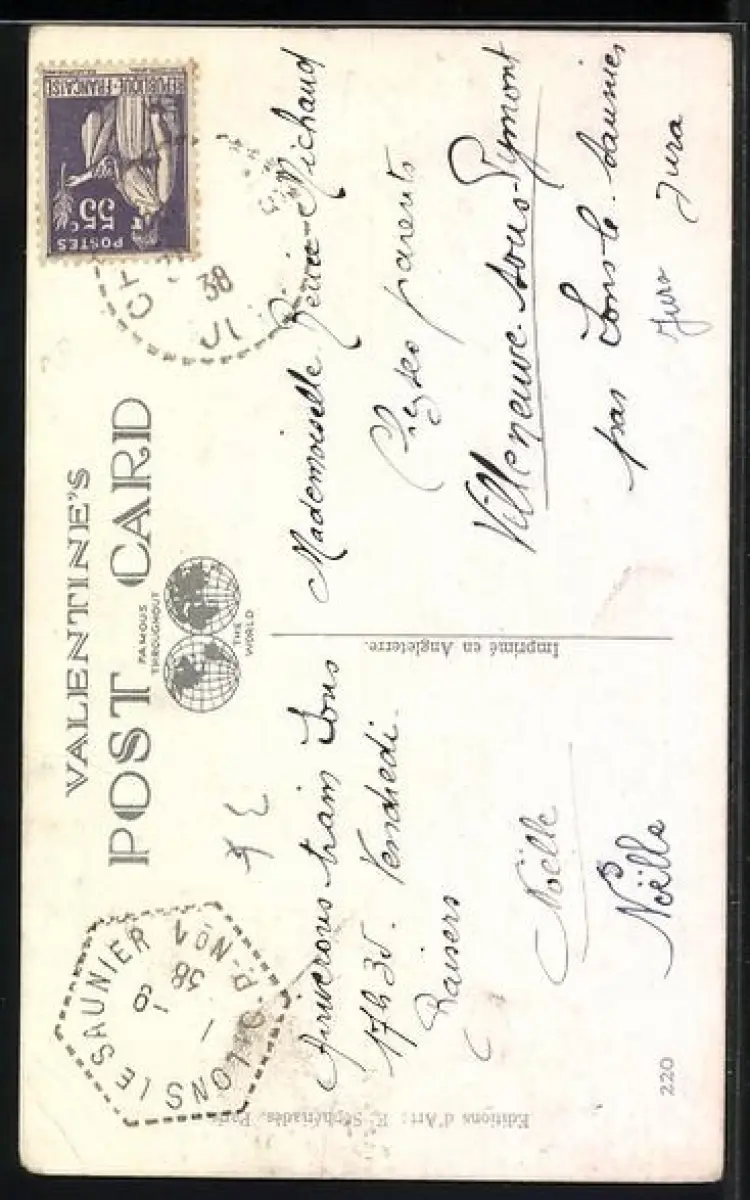 VALENTINE'S
POST CARD
FAMOUS
THROUGHOUT
THE
WORLD
REPUBLIQUE-FRANÇAISE
55c
POSTES
38
LONS LE SAUNIER
38
Arriverons train Lons
17h35. Vendredi.
Baisers
Noëlle
Noëlle
Mademoiselle Michaud
Chez ses parents
Villeneuve-sous-Pymont
par Lons-le-Saunier
Jura Jura
Imprimé en Angleterre.
Editions d'Art: E. Séphériadès, Paris
220